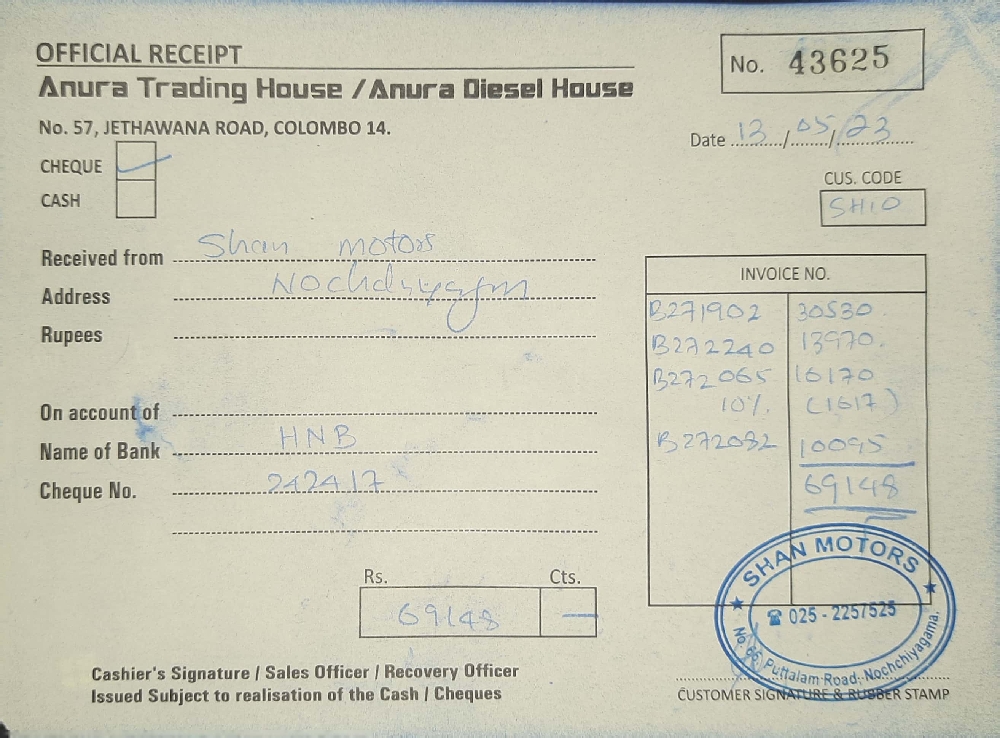 OFFICIAL RECEIPT
No. 43625
Anura Trading House / Anura Diesel House
No. 57, JETHAWANA ROAD, COLOMBO 14.
Date 13/05/23
CHEQUE
CASH
CUS. CODE
SH10
Received from Shan motors
Address
Rupees
On account of
Name of Bank HNB
Cheque No. 242417
INVOICE NO.
B271902 30530
B272240 13970.
B272065 16170
10%. (1617)
B272082 10095
69148
Rs. Cts.
69148 —
SHAN MOTORS
☎ 025 - 2257525
No. 66, Puttalam Road, Nochchiyagama.
Cashier's Signature / Sales Officer / Recovery Officer
Issued Subject to realisation of the Cash / Cheques
CUSTOMER SIGNATURE & RUBBER STAMP